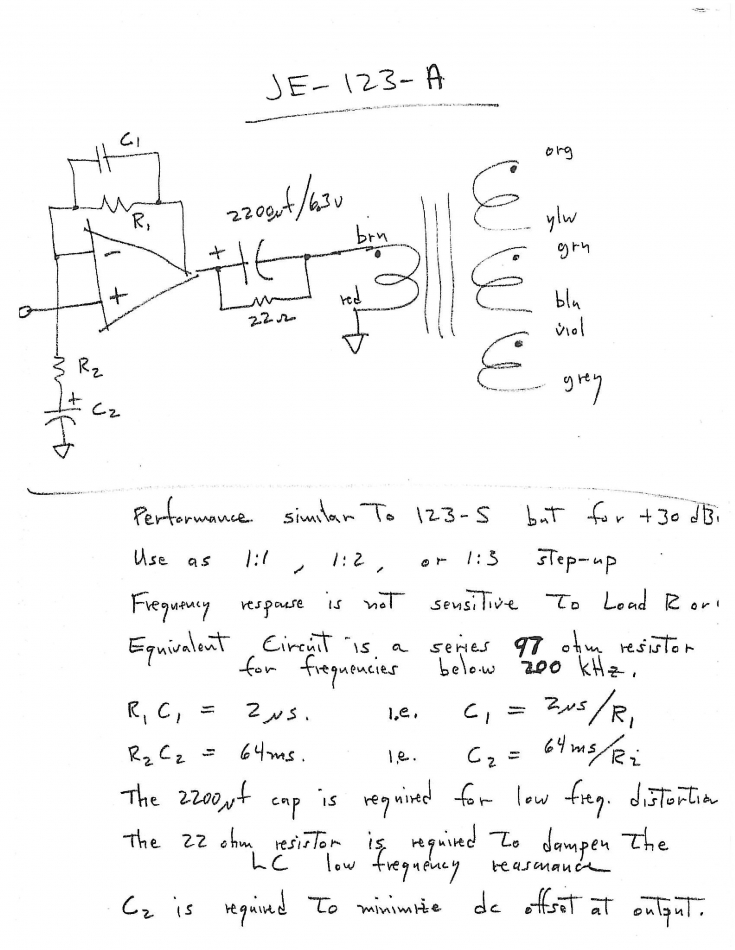 JE-123-A
C1
R1
2200µf/6.3v
org
ylw
brn
grn
-
+
+
22Ω
red
blu
viol
grey
R2
+
C2
Performance similar To 123-S but for +30 dB
Use as 1:1 , 1:2 , or 1:3 step-up
Frequency response is not sensitive To Load R or
Equivalent Circuit is a series 97 ohm resistor
for frequencies below 200 kHz.
R1 C1 = 2µs. i.e. C1 = 2µs/R1
R2 C2 = 64ms. i.e. C2 = 64ms/R2
The 2200µf cap is required for low freq. distortion
The 22 ohm resistor is required To dampen The
LC low frequency reasonance
C2 is required To minimize dc offset at output.